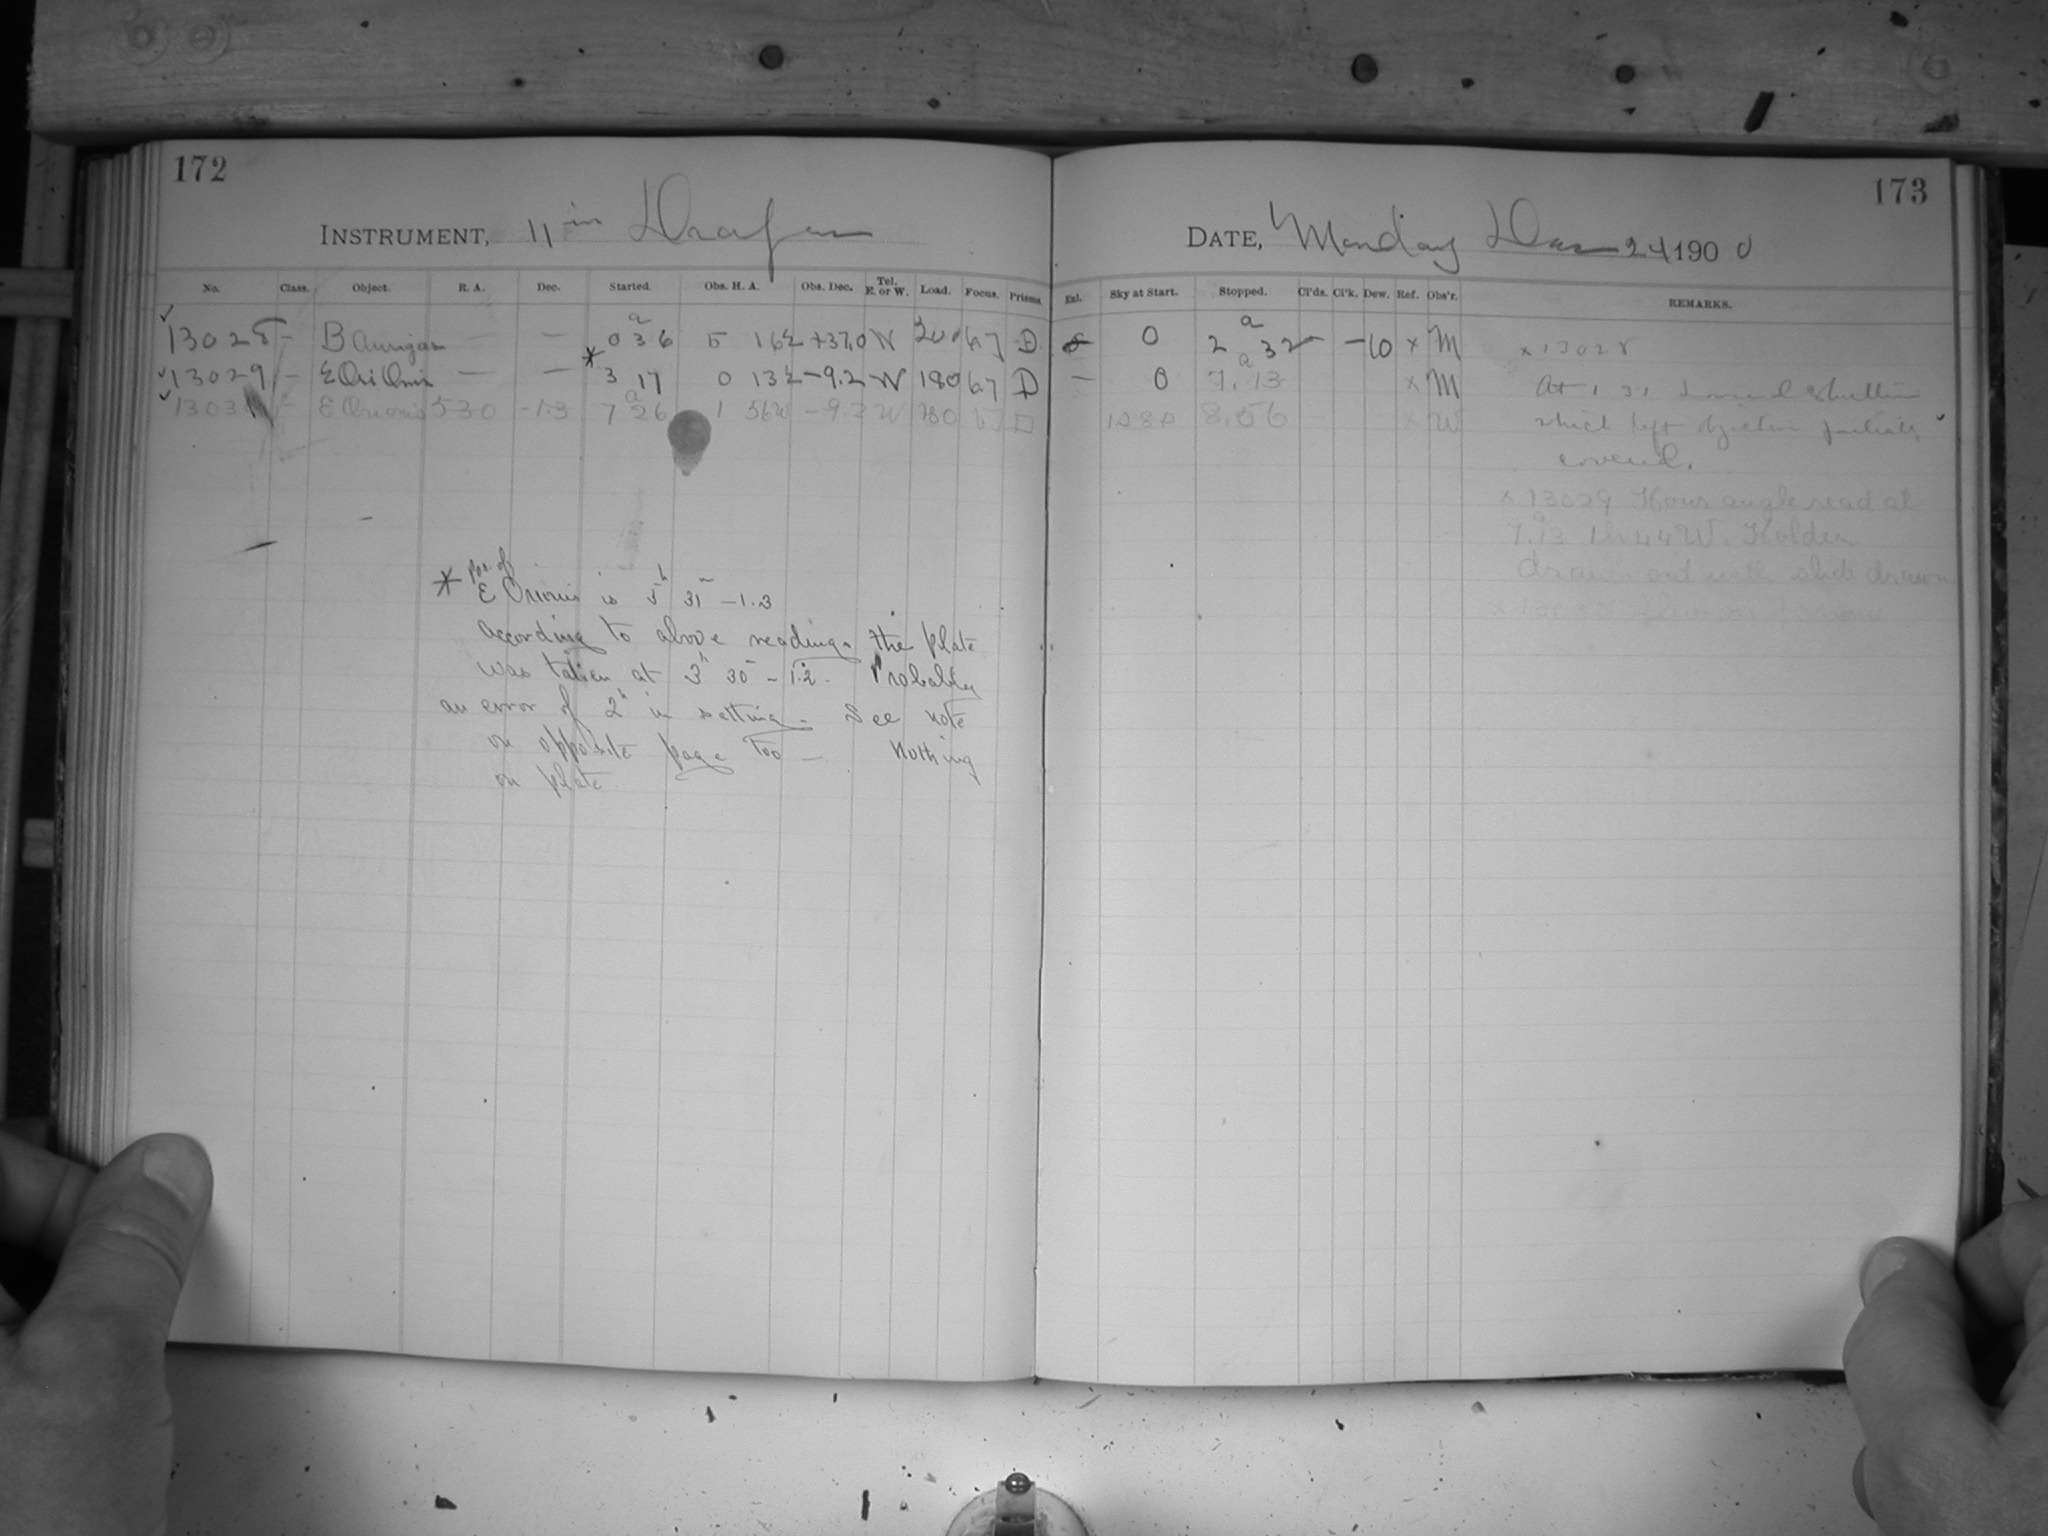 172
INSTRUMENT, 11 in Draper
No. Class. Object. R. A. Dec. Started. Obs. H. A. Obs. Dec. Tel. E. or W. Load. Focus. Prisms.
13028 – B Aurigae — — 0 a 36 5 16½ +37.0 W 200 67 D
13029 – E Ori Onis — — * 3 17 0 13½ –9.2 W 180 67 D
E Orionis 530 -1.3 7 a 26 1 56W –9.2 W 180 67 D
* pos. of
E Orionis is 5h 31m –1.3
According to above readings the plate
was taken at 3h 30m – 1.2. Probably
an error of 2h in setting. See note
on opposite page too — Nothing
on plate.
173
DATE, Monday Dec 24 1900
Enl. Sky at Start. Stopped. Cl'ds. Cl'k. Dew. Ref. Obs'r. REMARKS.
0 2 a 32 –10 x M x 13028
— 0 7.13 x M At 1 31 shutter
8.56 x W which left objective partially
covered.
x 13029 Hour angle read at
7.13 1h 44 W. Holder
drawn out with slide drawn